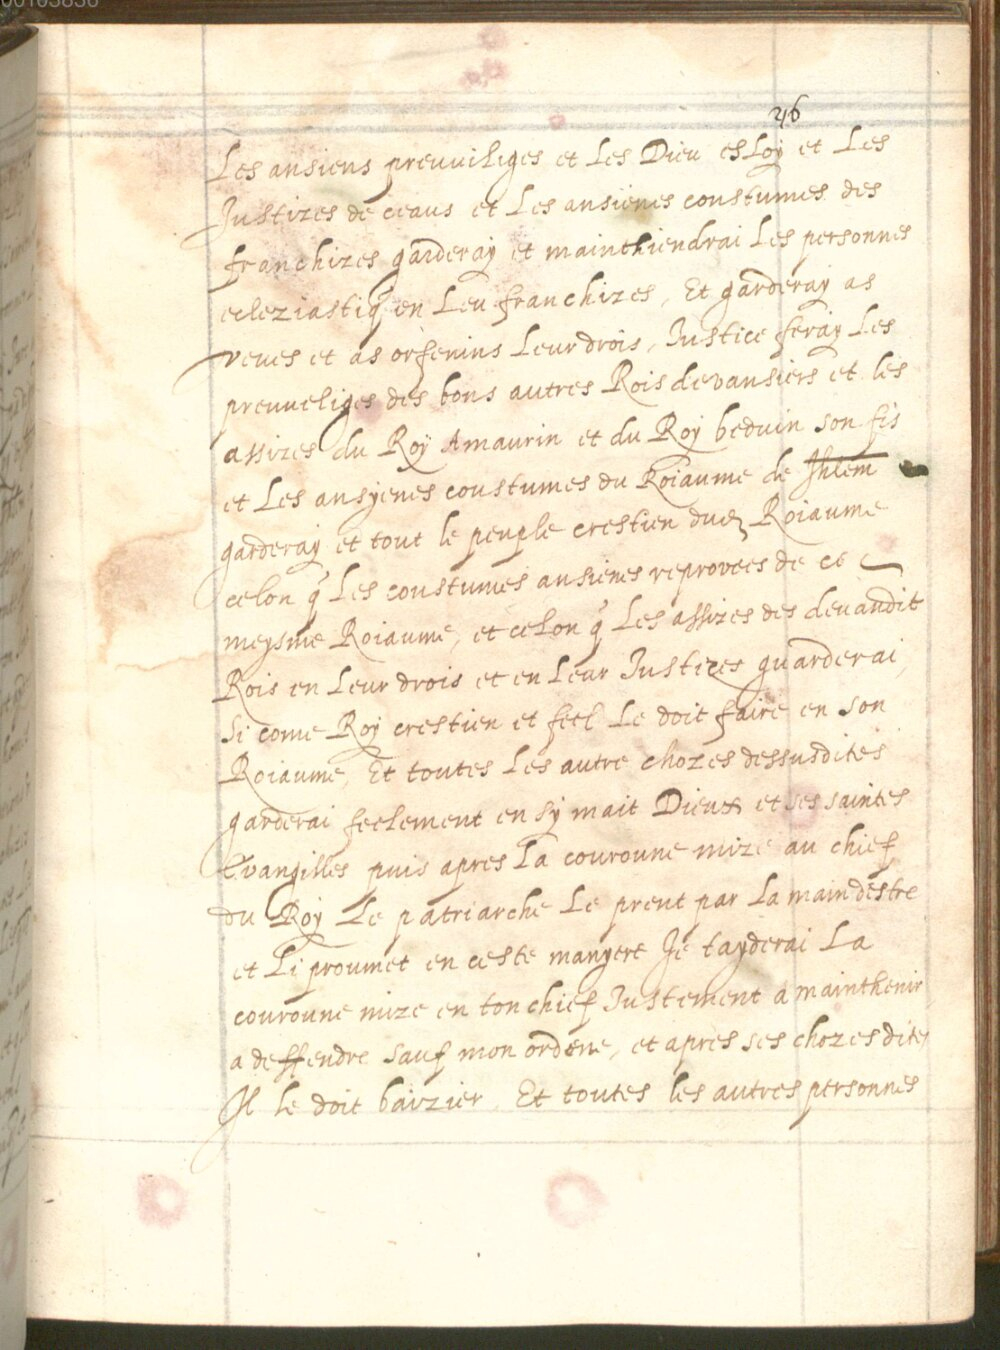 46
Les ansiens preuviliges et Les Dieu esLoy et Les
Justizes de ceaus et Les ansienes coustumes des
franchizes garderay et mainthiendrai Les personnes
ecleziastiq̃ en Leu franchizes, Et garderay as
veves et as orfenins Leur drois, Justice feray Les
preuveliges des bons autres Rois devansiers et les
assizes du Roÿ Amaurin et du Roÿ beduin son fis
et Les ansyenes coustumes du Roiaume de Jhlem
garderay et tout le peuple crestien dud Roiaume
celon q̃ Les coustumes ansienes reprovees de ce
meysme Roiaume, et celon q̃ Les assizes des devandit
Rois en Leur drois et en Leur Justizes guarderai,
Si come Roy crestien et feel Le doit faire en son
Roiaume, Et toutes Les autre chozes dessusdites
garderai feelement en sy mait Dieux et ses saintes
Evangilles puis apres La couroune mize au chief
du Roÿ Le patriarche Le prent par La main destre
et Li proumet en ceste manyere Je tayderai La
couroune mize en ton chief Justement a mainthenir
a deffendre sauf mon ordene, et apres ses chozes dites
Jl le doit baizier Et toutes les autres personnes